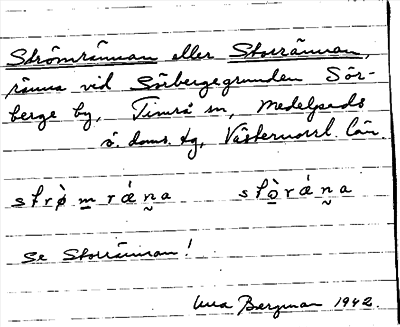 Strömrännan eller Storrännan,
ränna vid Sörbergegrunden Sör-
berge by, Timrå sn, Medelpads
ö. doms. tg, Västernorrl. län.
strø̀m rǽn̯a stò̱rǽn̯a
Se Storrännan!
Bergman 1942.